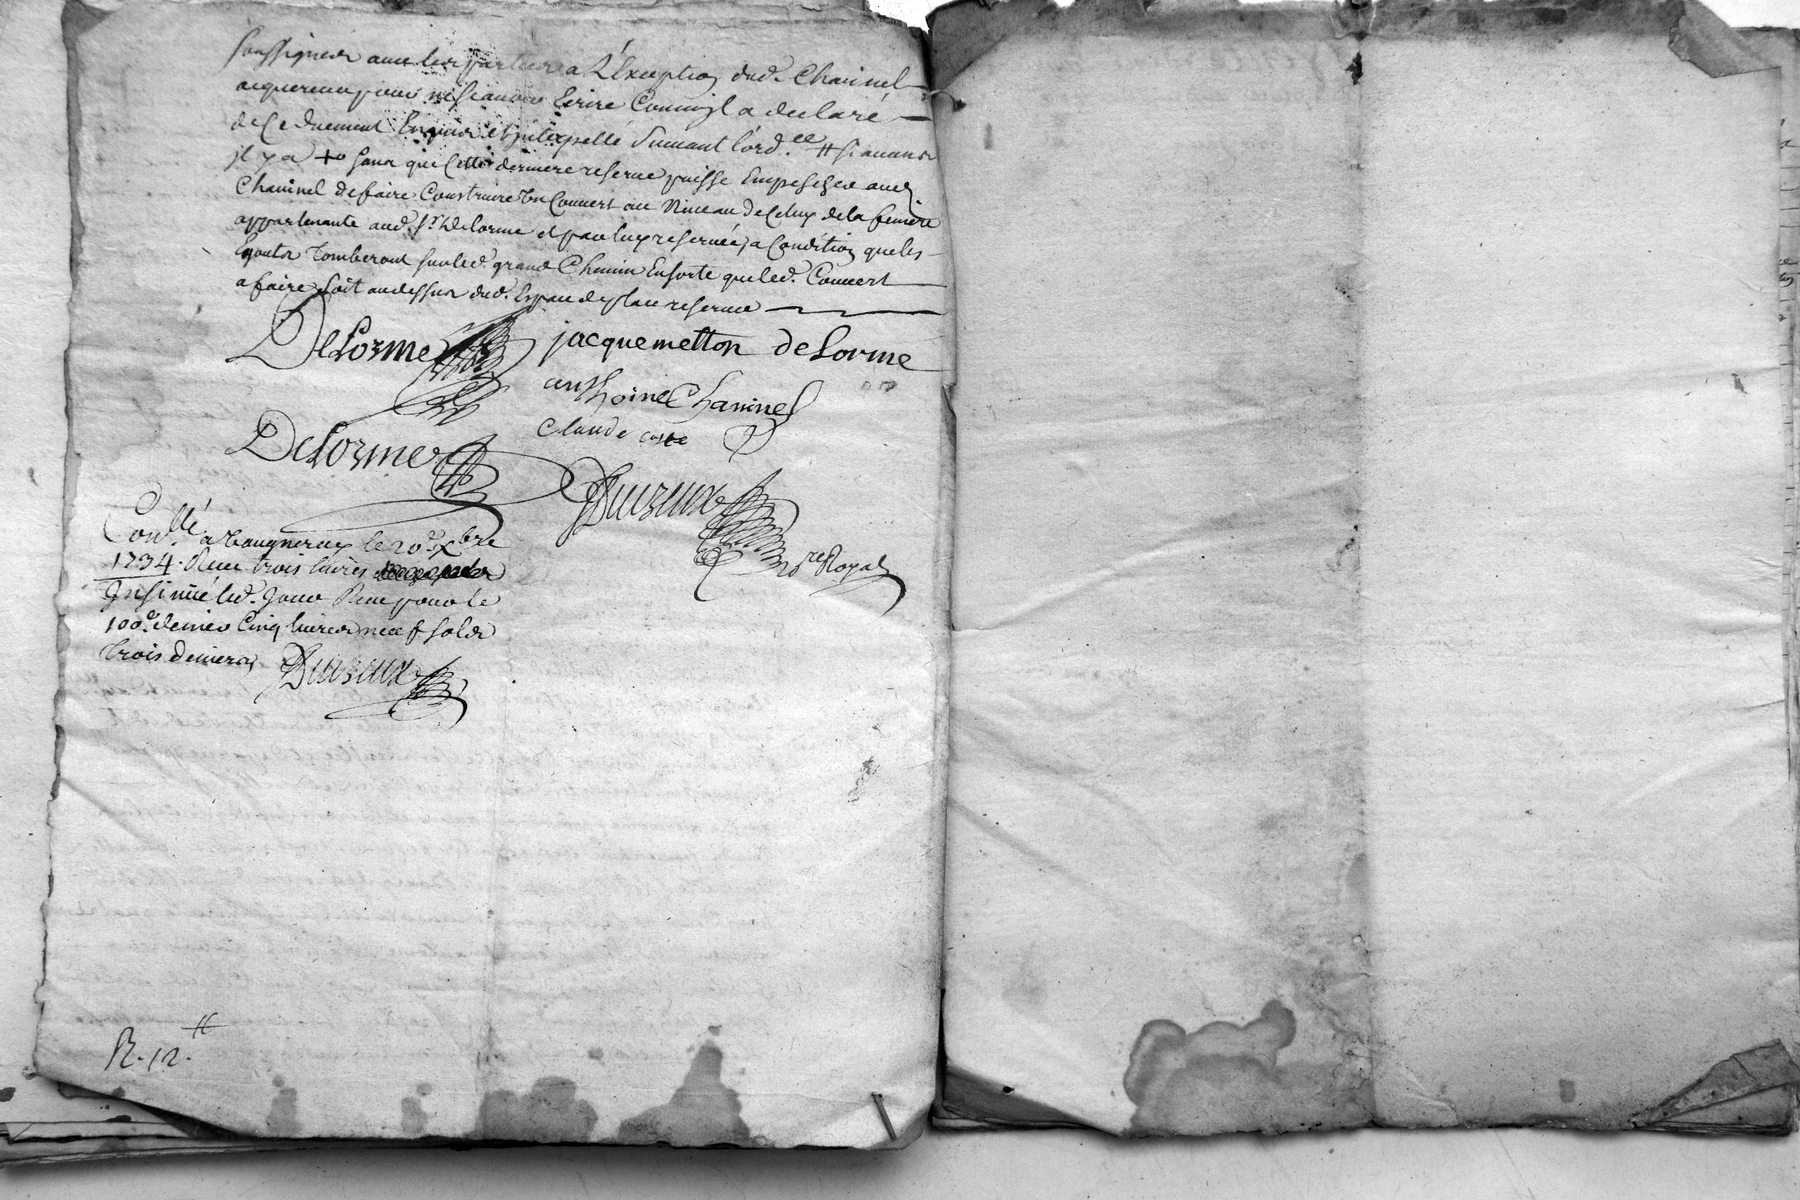 soussignés avec les parties a L'Exception dud. Chavinel
acquereur pour ne scavoir Ecrire Comm'jl a declaré
de Ce Duement Enquis et jnterpellé Suivant l'ord.ce # si avans
jl y a + sans que Cette derniere reserve puisse Empescher aud.
Chavinel de faire Construire Un Couvert au Niveau de Celuy de la feniere
appartenante aud. Sr. Delorme et par luy reservée, a Condition que les
Egouts Tomberont sur led. grand Chemin Ensorte que led. Couvert
a faire soit au dessus dud. Espace de place reservée
DeLorme jacquemetton deLorme
anthoine Chavinel
Claude coste
DeLorme
Duizeux
Nre Royal
Conllé a Vaugneray le 20e. Xbre
1734. Reçu trois livres
Jnsinué led. Jour Reçu pour le
100e. denier Cinq livres neuf sols
trois deniers Duizeux
R. 12.#